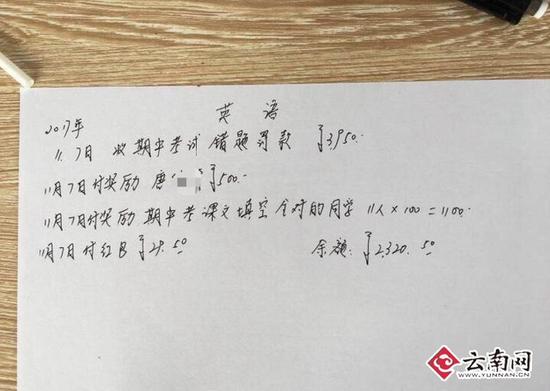 英语
2017年
11.7日 收期中考试错题罚款 ¥3,950.
11月7日付奖励 唐 ¥500.
11月7日付奖励 期中考课文填空全对的同学 11人×100=1100.
11月7日付红包 ¥29.50 余额: ¥2,320.50
云南网
WWW.YUNNAN.CN